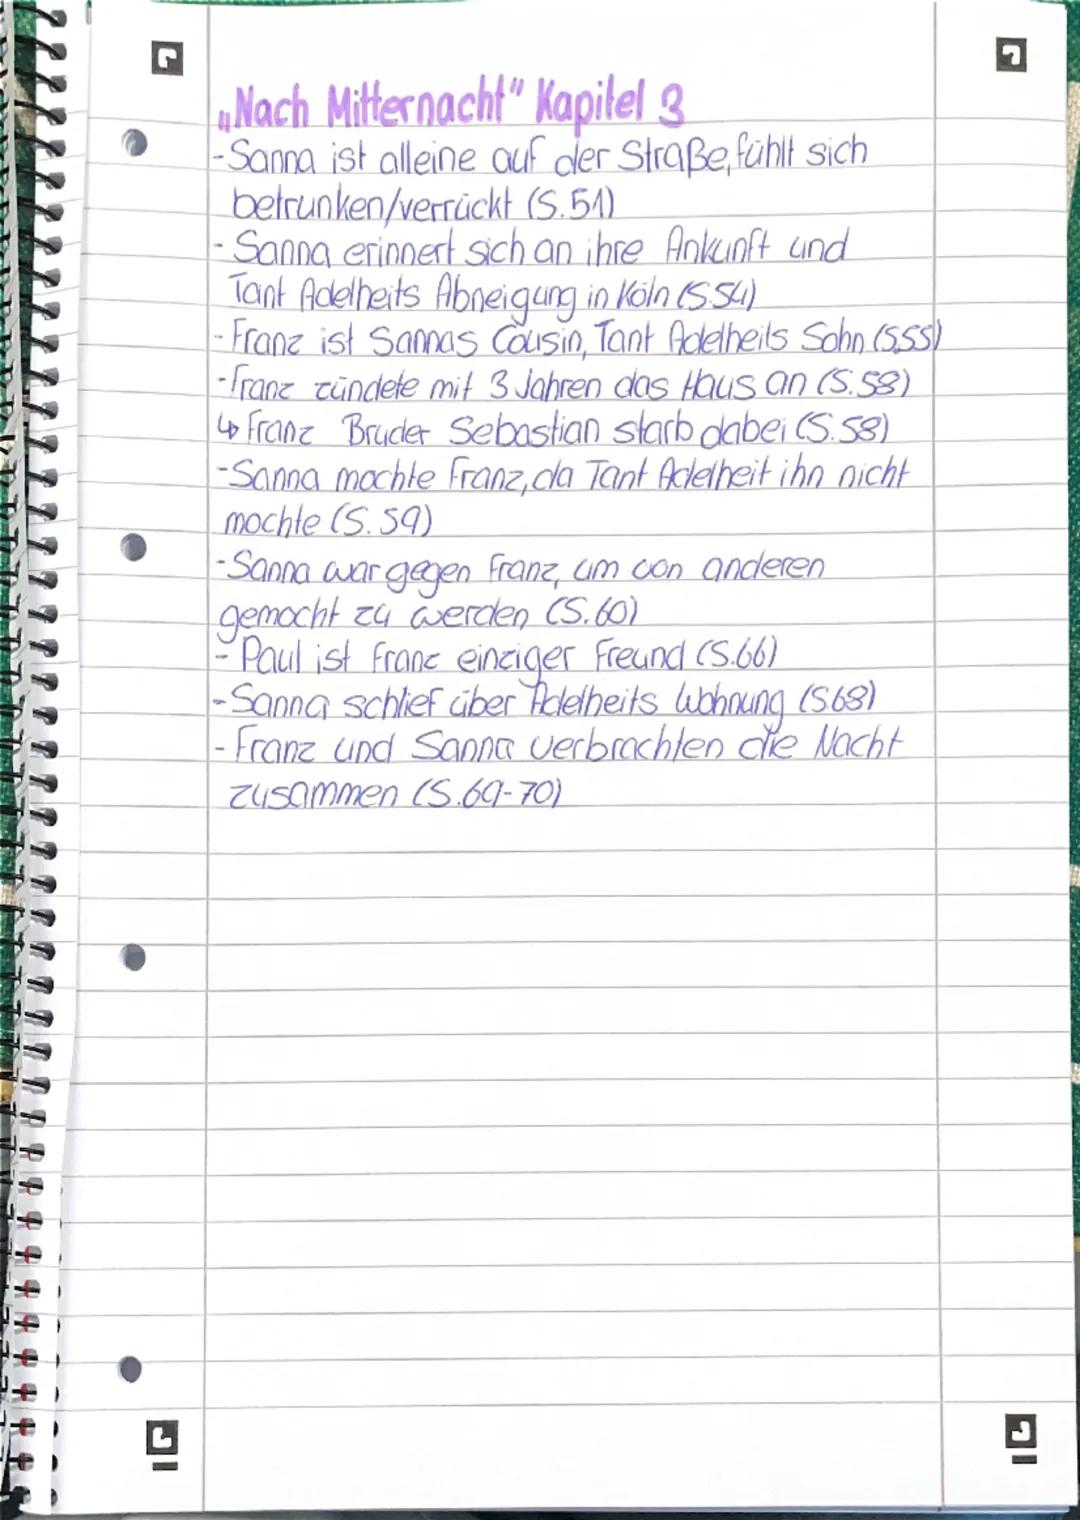 „Nach Mitternacht" Kapitel 3
- Sanna ist alleine auf der Straße, fühlt sich
betrunken/verrückt (S.51)
- Sanna erinnert sich an ihre Ankunft und
Tant Adelheits Abneigung in Köln (S.54)
- Franz ist Sannas Cousin, Tant Adelheits Sohn (S.55)
- Franz zündete mit 3 Jahren das Haus an (S.58)
↳ Franz Bruder Sebastian starb dabei (S.58)
- Sanna mochte Franz, da Tant Adelheit ihn nicht
mochte (S.59)
- Sanna war gegen Franz, um von anderen
gemocht zu werden (S.60)
- Paul ist Franz einziger Freund (S.66)
- Sanna schlief über Adelheits Wohnung (S.68)
- Franz und Sanna verbrachten die Nacht
zusammen (S.69-70)